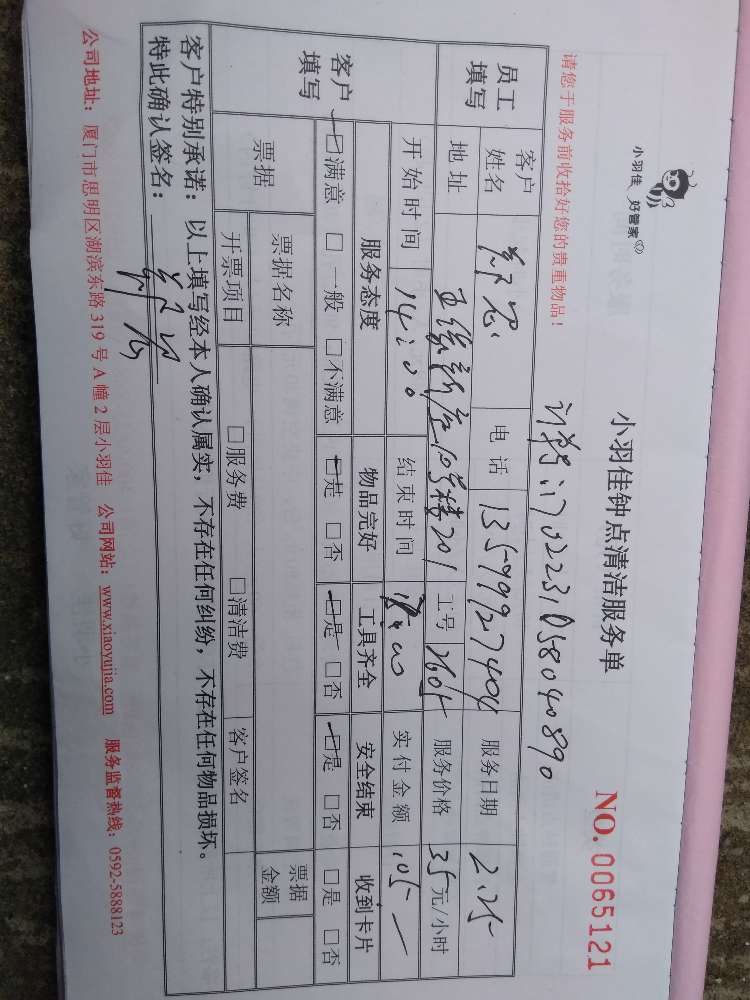 小羽佳 好管家
小羽佳钟点清洁服务单
NO. 0065121
请您于服务前收拾好您的贵重物品！
1702231058040890
员工填写 客户姓名 电话 13599927404 服务日期 2.25
地址 10号楼201 工号 服务价格 35元/小时
客户填写 开始时间 14:00 结束时间 实付金额 105一
服务态度 物品完好 工具齐全 安全结束 收到卡片
☑满意 □一般 □不满意 ☑是 □否 ☑是 □否 ☑是 □否 □是 □否
票据 票据名称 票据金额
开票项目 □服务费 □清洁费 客户签名
客户特别承诺：以上填写经本人确认属实，不存在任何纠纷，不存在任何物品损坏。
特此确认签名：
公司地址：厦门市思明区湖滨东路 319 号 A 幢 2 层小羽佳 公司网站：www.xiaoyujia.com 服务监督热线：0592-5888123